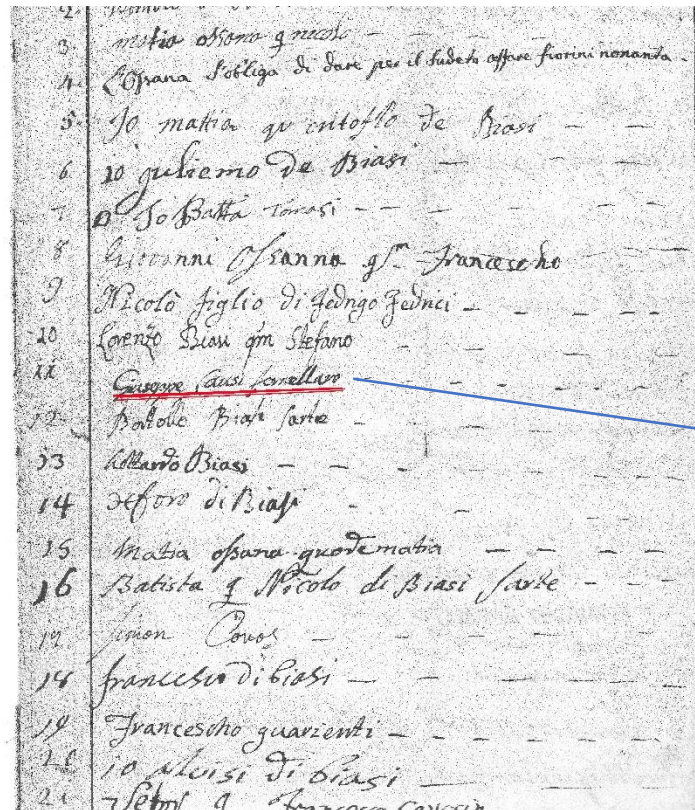 2.
3. matia ossana q nicolo
4. L'Ossana s'obliga di dare per il sudeto affare fiorini nonanta
5. Jo mattia qu critoflo de Biasi
6 10 guliemo De Biasi
7 Jo Batta Tomasi
8 Giovanni Ossanna qm Francescho
9 Nicolò figlio di Fedrigo Fedrici
10 Lorenzo Biasi qm Stefano
11 Giuseppe
12 Bortollo Biasi sarte
13 Biasi
14 di Biasi
15 Matia ossana quodematia
16 Batista q Nicolo di Biasi sarte
17 simon
18 francesco di biasi
19 Francescho guarienti
20 io aloisi di biasi
21 q Francesco